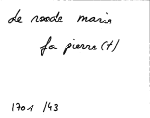 de roode maria
fa pierre (+)
1701 /43